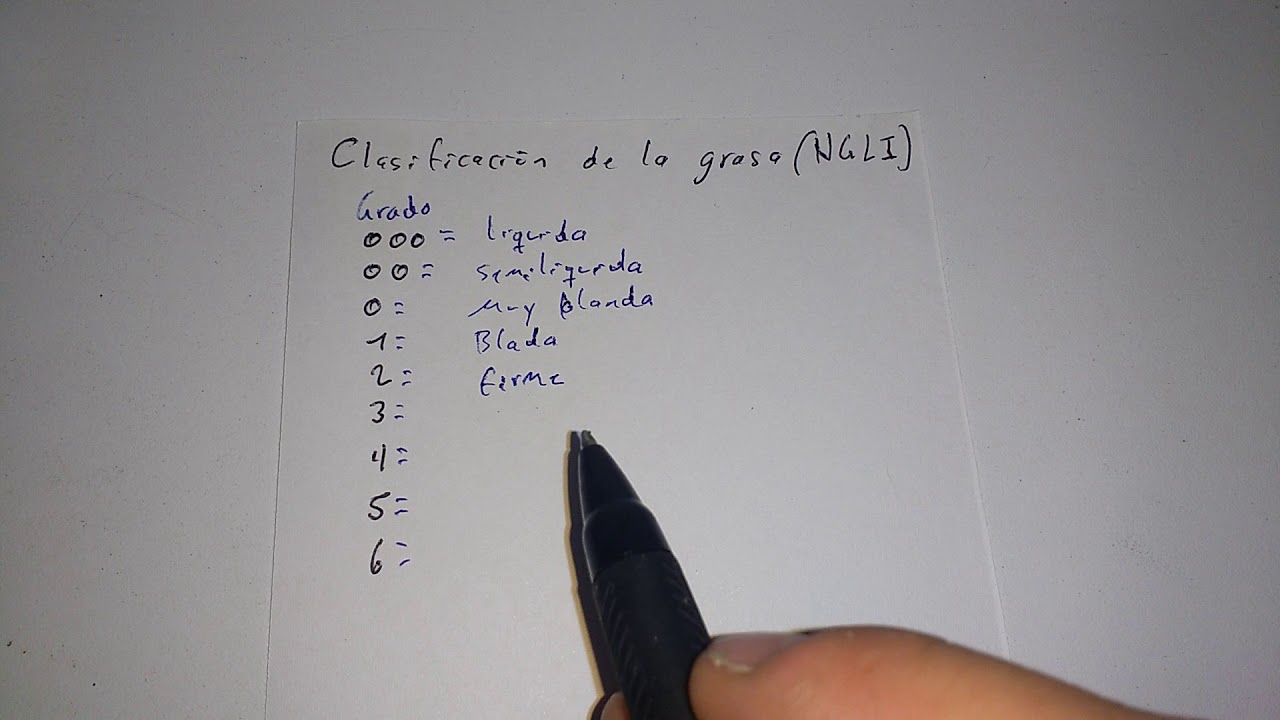 Clasificación de la grasa (NGLI)
Grado
000 = liquida
00 = semiliquida
0 = muy blanda
1 = Blada
2 = firme
3 =
4 =
5 =
6 =